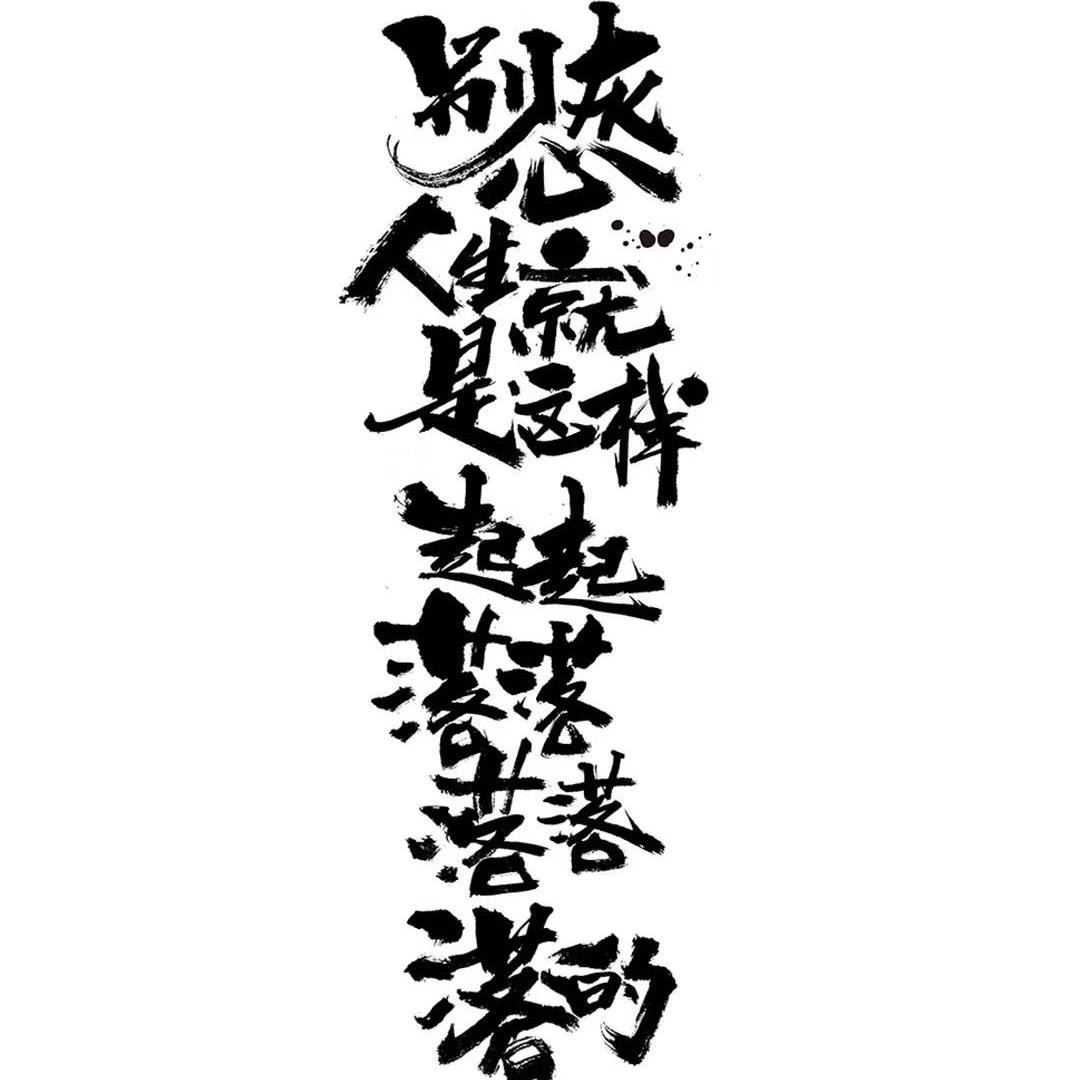 别灰心
人生就
是这样
起起
落落
落落
落的